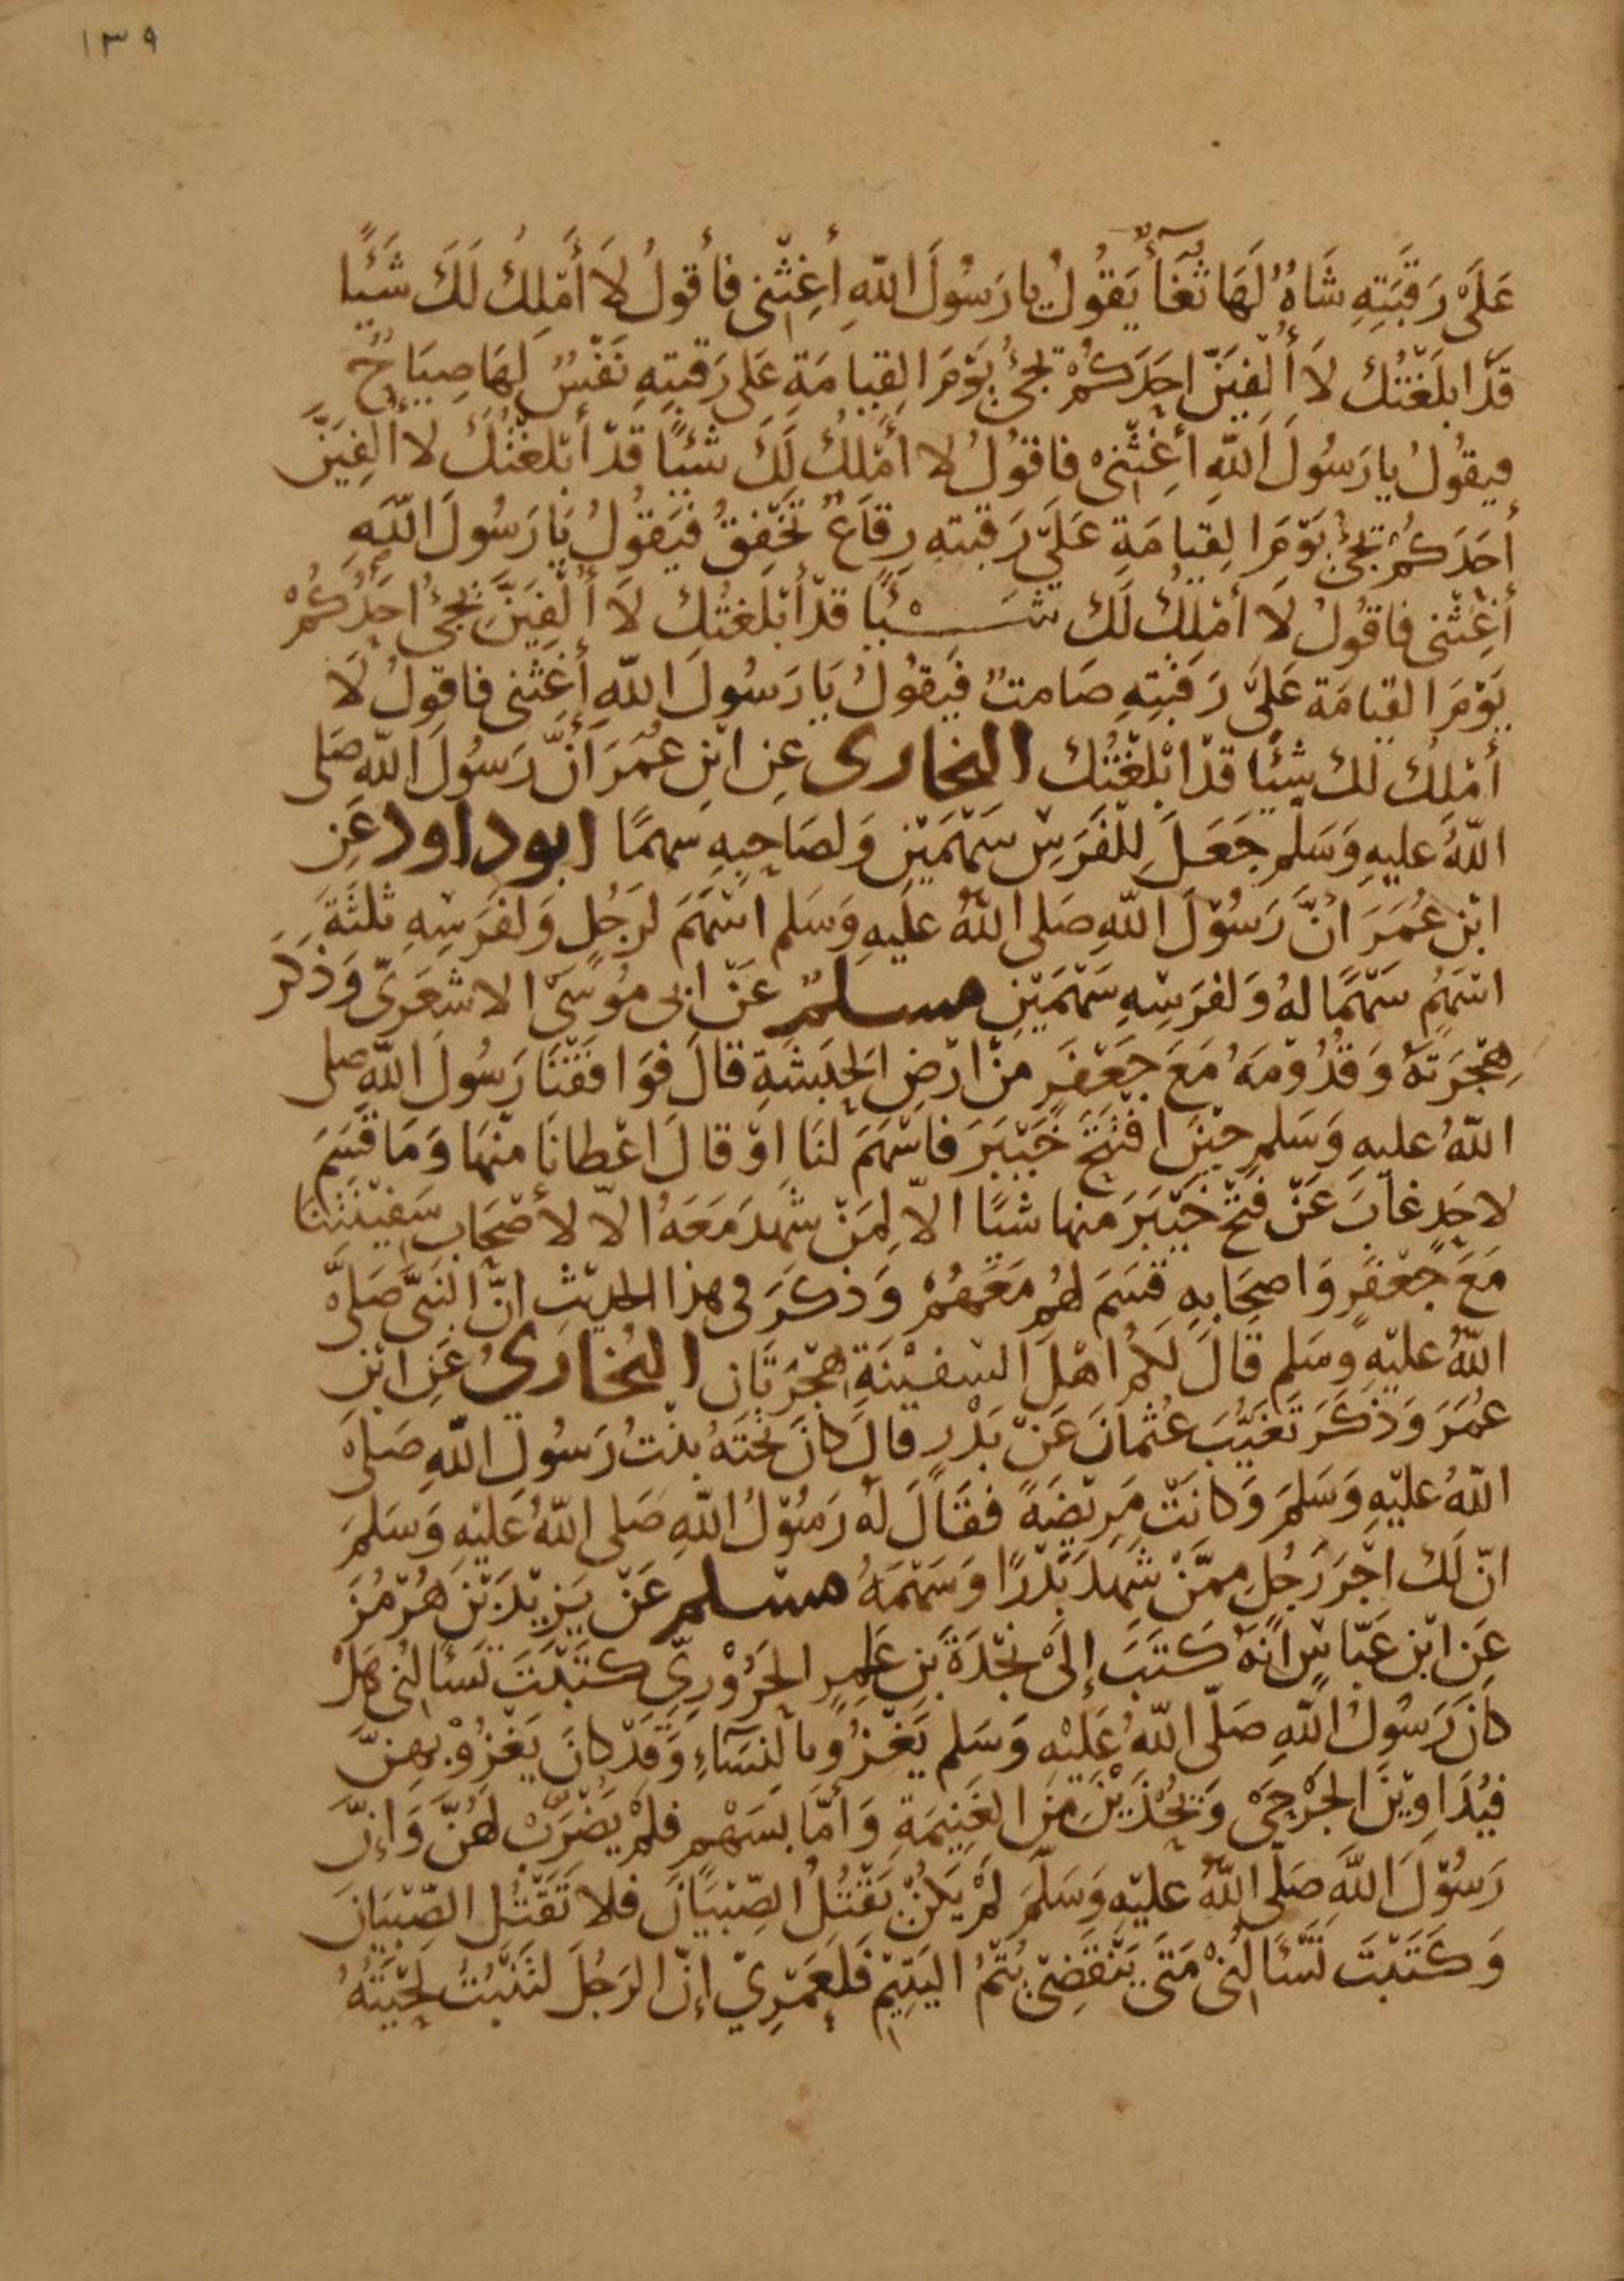 ١٣٩
عَلَى رَقَبَتِهِ شَاةٌ لَهَا ثُغَآءٌ يَقُولُ يا رَسُولَ اللّهِ أَغِثْنِي فأَقولُ لَا أَمْلِكُ لَكَ شَئًا
قَدْ ابلَغْتُكَ لَا أُلْفِيَنَّ احَدَكُمْ يجئُ يَوْمَ القِيامَةِ عَلى رَقبتِهِ نَفْسٌ لهَا صِيَاحٌ
فيقُولُ يا رَسُولَ اللّهِ أَغِثْنِى فاقوُلُ لا أَمْلِكُ لَكَ شَئًا قَدْ أَبْلَغْتُكَ لا أُلْفِيَنَّ
أَحَدَكُمْ يَجِئُ يَوْمَ القِيامَةِ عَلَى رَقبتهِ رِقَاعٌ تَخْفِقُ فَيَقُولُ يَا رَسُولَ اللّهِ
أَغِثْنى فاقُولُ لَا أَمْلِكُ لَكَ شَــيْئًا قَدْ أَبْلَغتُكَ لَا أُلْفِيَنَّ يَجِئُ احَدُكُمْ
يَوْمَ القيامَة عَلَى رَقَبَتِهِ صَامتٌ فَيَقوُلُ يَا رَسُولَ اللّهِ أَغِثْنى فاقولُ لَا
أَمْلِكُ لكَ شئًا قَدْ ابْلَغْتُكَ البخارى عَنِ ابْنِ عُمَرَ أَنَّ رَسُولَ اللّهِ صَلى
اللّهُ عليهِ وَسَلم جَعَلَ لِلْفَرَسِ سَهْمَيْنِ وَلصَاحِبِهِ سهمًا ابوداود عَنِ
ابْنِ عُمَرَ انَّ رَسُوْلَ اللّهِ صَلى اللّهُ عَليهِ وَسَلم اسْهَمَ لرَجُلٍ وَلفَرَسِهِ ثلثَةَ
اسْهُمٍ سَهْمًا لهُ وَلفرَسِهِ سَهْمَيْنِ مسلمٌ عَنْ ابى مُوسَى الاشعَرِىّ وَذَكَرَ
هِجْرَتَهُ وَقُدُوْمَهُ مَعَ جَعْفَرٍ مِنْ ارْضِ الحَبَشَةِ قالَ فوَافَقْنَا رَسُولَ اللّهِ صلى
اللّهُ عليهِ وَسَلم حيْنَ افْتَتَحَ خَيْبَرَ فاسْهَمَ لنَا اوْ قالَ اعْطانَا منْهَا وَمَا قَسَمَ
لاحَدٍ غابَ عَنْ فَتْحِ خَيْبَرَ منها شئًا الّا لِمَنْ شَهِدَ مَعَهُ الّا لأَصْحَابِ سَفِيْنَتِنَا
مَعَ جَعْفَرٍ وَاصحَابِهِ قَسَمَ لهُم مَعَهُمْ وَذكَرَ فى هذا الحديْثِ انّ النبَىَّ صَلَى
اللّهُ عليْهِ وسَلم قالَ لكُم اهْلَ السَفيْنَةِ هِجْرَتَانِ البُخَارِىُ عَنِ ابْنِ
عُمَرَ وَذَكَرَ تَغَيُّبَ عُثْمانَ عَنْ بَدْرٍ قالَ كانَ تَحْتَهُ بنْتُ رَسُولِ اللّهِ صَلى
اللّهُ عليْهِ وَسَلمَ وَكانَتْ مَرِيْضَةً فقَالَ لهُ رَسُوْلُ اللّهِ صَلى اللّهُ عَليْهِ وَسَلمَ
انّ لَكَ اجْرَ رَجُلٍ ممّنْ شَهِدَ بَدْرًا وَسَهْمَهُ مسلم عَنْ يَزِيْدَ بْنِ هُرْمُزَ
عَنِ ابْنِ عَبّاسٍ انّهُ كَتَبَ إلى نَجْدَةَ بْنِ عَامِرٍ الحَرُوْرِيّ كتَبْتَ تَسْأَلنِى هَلْ
كَانَ رَسُولُ اللّهِ صَلّى اللّهُ عَليْهِ وَسَلم يَغْزُو بالنِسَآءِ وَقَدْ كانَ يَغْزُوْ بِهِنَّ
فَيُدَاوِيْنَ الجَرْحَى وَيُحْذَيْنَ مِنَ الغَنِيمَةِ وَأَمَّا بسَهْمٍ فلَمْ يَضْرِبْ لهُنَّ وَإِنّ
رَسُوْلَ اللّهِ صَلّى اللّهُ عليْهِ وَسَلّمَ لَمْ يَكُنْ يَقْتُلُ الصِّبْيَانَ فلا تَقْتُلِ الصِّبْيَانَ
وَكَتَبْتَ تَسْأَلُنِىْ مَتَى يَنْقَضِيْ يُتْمُ اليَتِيْمِ فَلعَمْرِيْ إنّ الرَجُلَ لتَنْبُتُ لِحْيَتُهُ